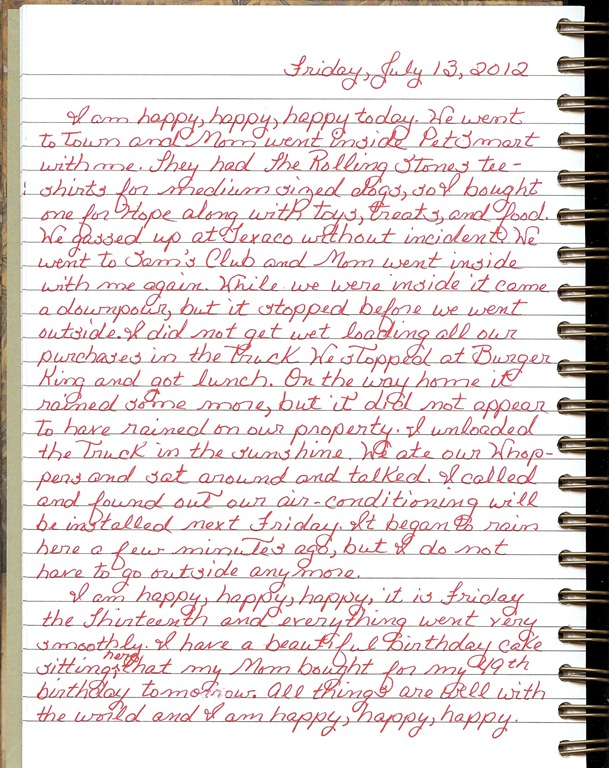 Friday, July 13, 2012
I am happy, happy, happy today. We went
to Town and Mom went inside PetSmart
with me. They had The Rolling Stones tee-
shirts for medium sized dogs, so I bought
one for Hope along with toys, treats, and food.
We gassed up at Texaco without incident. We
went to Sam's Club and Mom went inside
with me again. While we were inside it came
a downpour, but it stopped before we went
outside. I did not get wet loading all our
purchases in the truck. We stopped at Burger
King and got lunch. On the way home it
rained some more, but it did not appear
to have rained on our property. I unloaded
the Truck in the sunshine. We ate our Whop-
pers and sat around and talked. I called
and found out our air-conditioning will
be installed next Friday. It began to rain
here a few minutes ago, but I do not
have to go outside anymore.
I am happy, happy, happy, it is Friday
the Thirteenth and everything went very
smoothly. I have a beautiful birthday cake
sitting here that my Mom bought for my 49th
birthday tomorrow. All things are well with
the world and I am happy, happy, happy.